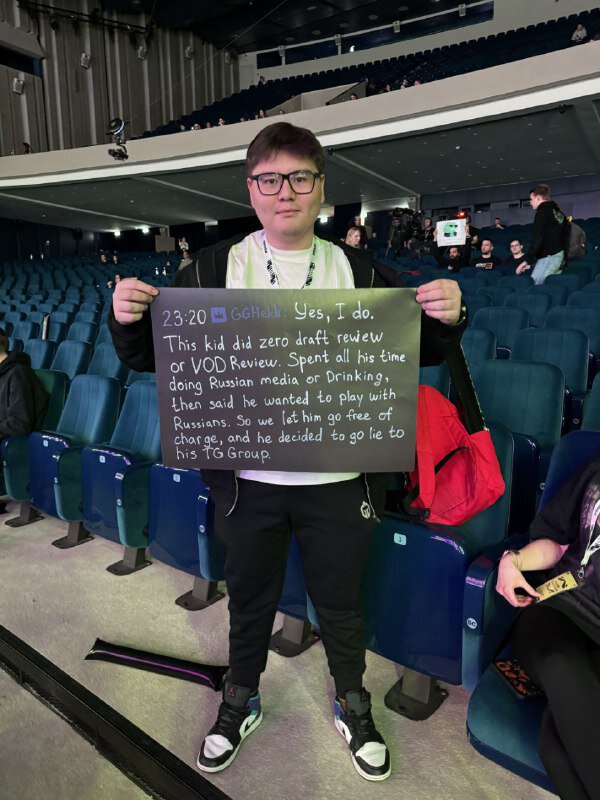 23:20 GGHekli: Yes, I do.
This kid did zero draft review
or VOD Review. Spent all his time
doing Russian media or Drinking,
then said he wanted to play with
Russians. So we let him go free of
charge, and he decided to go lie to
his TG Group.
3